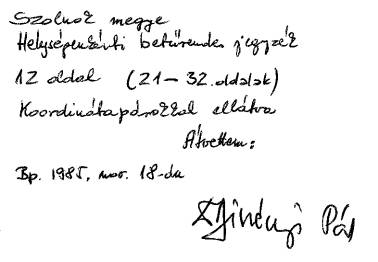 Szolnok megye
Helységenkénti betűrendes jegyzék
12 oldal (21-32. oldalak)
Koordinátapárokkal ellátva
Átvettem:
Bp. 1985. nov. 18-án
Pál